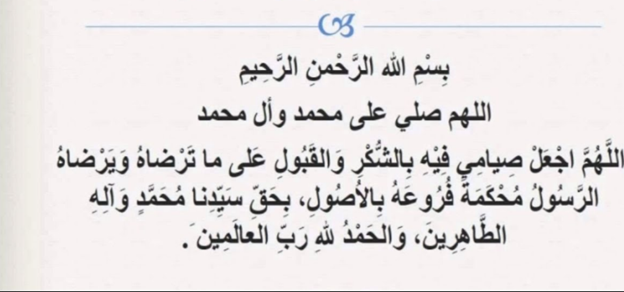 بِسْمِ الله الرَّحْمنِ الرَّحِيمِ
اللهم صلي على محمد وأل محمد
اللَّهُمَّ اجْعَلْ صِيامِي فِيْهِ بِالشُّكْرِ وَالقَبُولِ عَلى ما تَرْضاهُ وَيَرْضاهُ
الرَّسُولُ مُحْكَمَةً فُرُوعَهُ بِالأُصُولِ، بِحَقِّ سَيِّدِنا مُحَمَّدٍ وَآلِهِ
الطَّاهِرِينَ، وَالحَمْدُ للهِ رَبِّ العالَمِينَ.